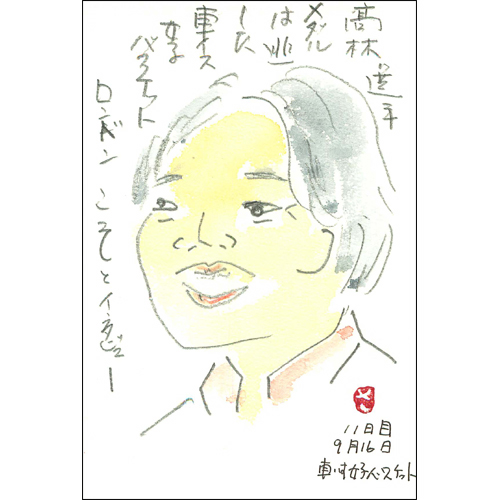 髙林選手
メダル
は逃
した
車イス
女子
バスケット
ロンドンこそとインタビュー
11日目
9月16日
車いす女子バスケット